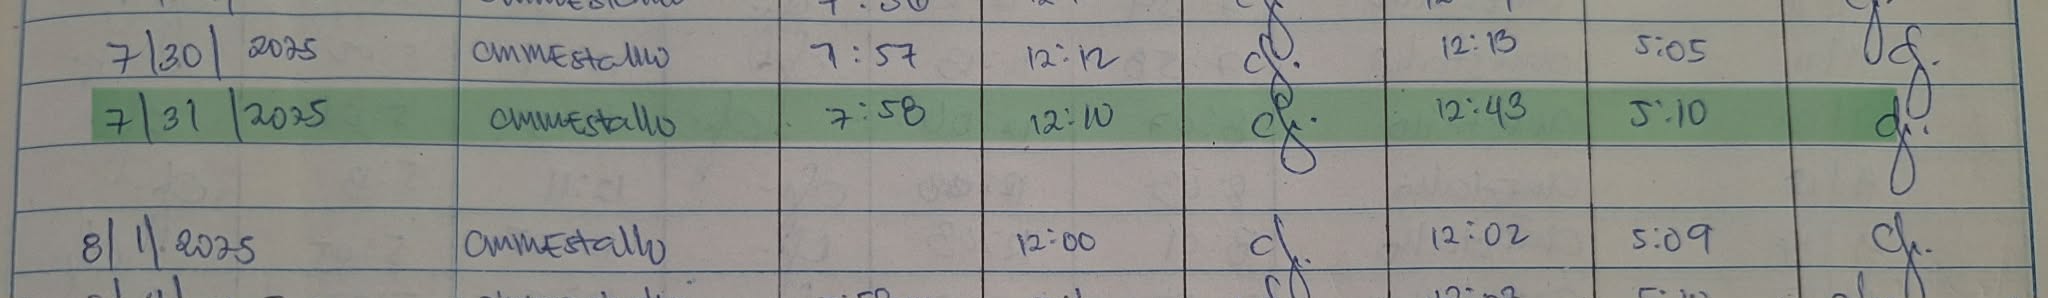 7/30/ 2025 CMMEstallo 7:57 12:12 cf. 12:13 5:05 cf.
7/31/2025 CMMEstallo 7:58 12:10 cf. 12:43 5:10 cf.
8/1/2025 CMMEstallo 12:00 cf. 12:02 5:09 cf.